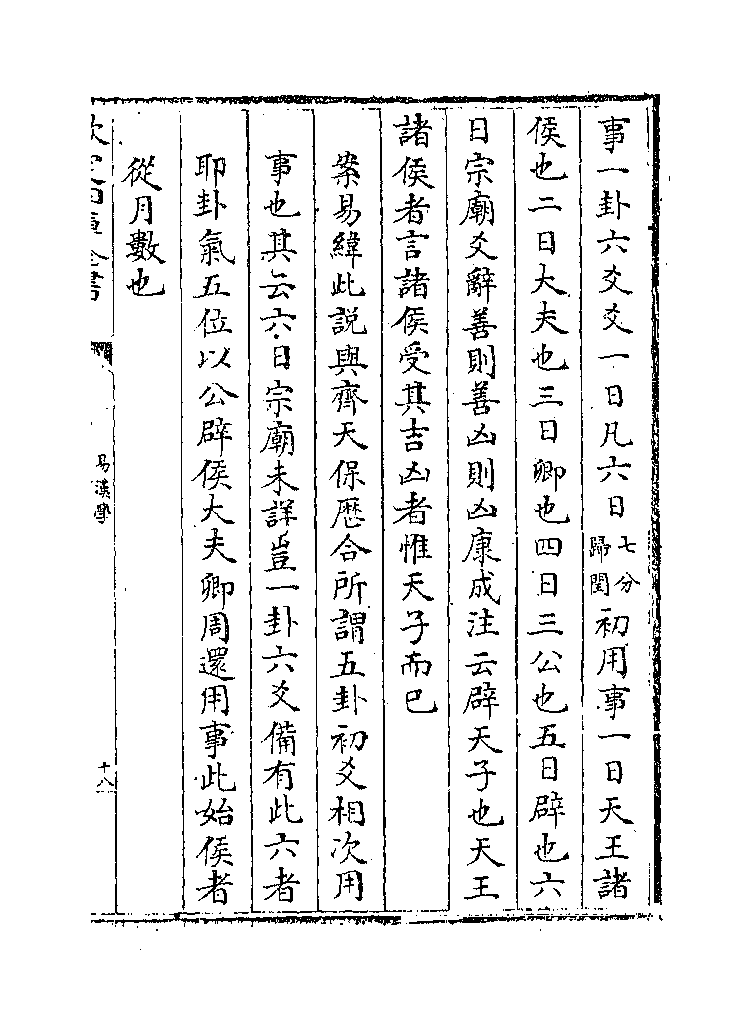 事一卦六爻爻一日凡六日七分歸閏初用事一日天王諸
侯也二日大夫也三日卿也四日三公也五日辟也六
日宗廟爻辭善則善凶則凶康成注云辟天子也天王
諸侯者言諸侯受其吉凶者惟天子而已
案易緯此説與齊天保厯合所謂五卦初爻相次用
事也其云六日宗廟未詳豈一卦六爻備有此六者
耶卦氣五位以公辟侯大夫卿周還用事此始侯者
從月數也
欽定四庫全書
易漢學
十八